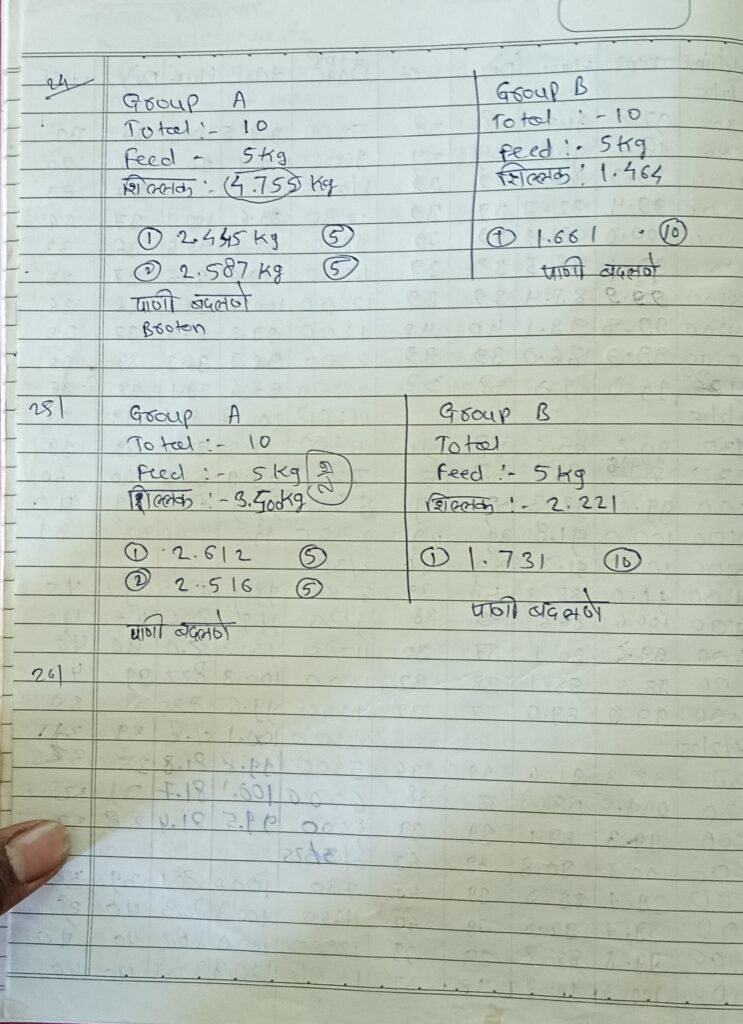 24
Group A
Total :- 10
feed - 5kg
शिल्लक :- 4.755 kg
① 2.445 kg ⑤
② 2.587 kg ⑤
पाणी बदलणे
Broton
Group B
Total :- 10
feed :- 5kg
शिल्लक : 1.464
① 1.661 ⑩
पाणी बदलणे
25/
Group A
Total :- 10
feed :- 5kg
शिल्लक :- 3.500kg
① 2.612 ⑤
② 2.516 ⑤
पाणी बदलणे
Group B
Total
feed :- 5kg
शिल्लक :- 2.221
① 1.731 ⑩
पाणी बदलणे
26/